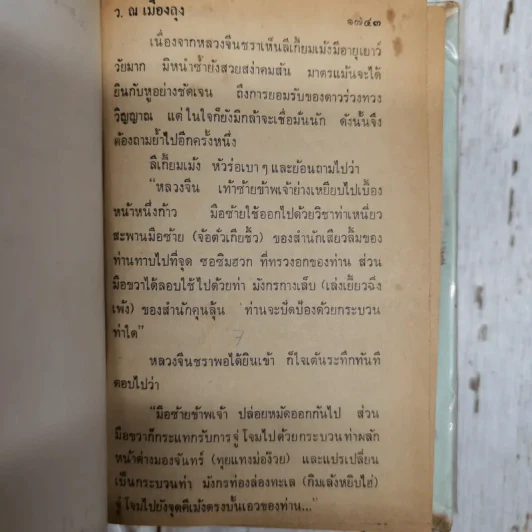 ว. ณ เมืองลุง
๑๗๔๓
เนื่องจากหลวงจีนชราเห็นลีเกี้ยมเม้งมีอายุเยาว์
วัยมาก มิหนำซ้ำยังสวยสง่าคมสัน มาตรแม้นจะได้
ยินกับหูอย่างชัดเจน ถึงการยอมรับของดาวร่วงทวง
วิญญาณ แต่ในใจก็ยังมิกล้าจะเชื่อมั่นนัก ดังนั้นจึง
ต้องถามย้ำไปอีกครั้งหนึ่ง
ลีเกี้ยมเม้ง หัวร่อเบา ๆ และย้อนถามไปว่า
“หลวงจีน เท้าซ้ายข้าพเจ้าย่างเหยียบไปเบื้อง
หน้าหนึ่งก้าว มือซ้ายใช้ออกไปด้วยวิชาท่าเหนี่ยว
สะพานมือซ้าย (จ้อตั่วเกียชิ้ว) ของสำนักเสียวลิ้มของ
ท่านทาบไปที่จุด ซอซิมฮวก ที่ทรวงอกของท่าน ส่วน
มือขวาได้ลอบใช้ไปด้วยท่า มังกรกางเล็บ (เล่งเยี้ยวฉิ่ง
เพ้ง) ของสำนักคุนลุ้น ท่านจะปัดป้องด้วยกระบวน
ท่าใด”
7
หลวงจีนชราพอได้ยินเข้า ก็ใจเต้นระทึกทันที
ตอบไปว่า
“มือซ้ายข้าพเจ้า ปล่อยหมัดออกกันไป ส่วน
มือขวาก็กระแทกรับการจู่โจมไปด้วยกระบวนท่าผลัก
หน้าต่างมองจันทร์ (ทุยแทงม่อง้วย) และแปรเปลี่ยน
เป็นกระบวนท่า มังกรท่องล่องทะเล (กิมเล้งหยิบไฮ่)
จู่โจมไปยังจุดคีเม้งตรงบั้นเอวของท่าน...”